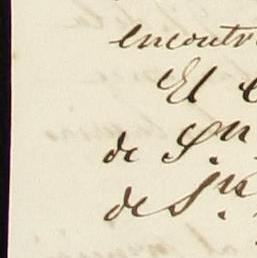 encontr
El
de Sn.
de Jn.